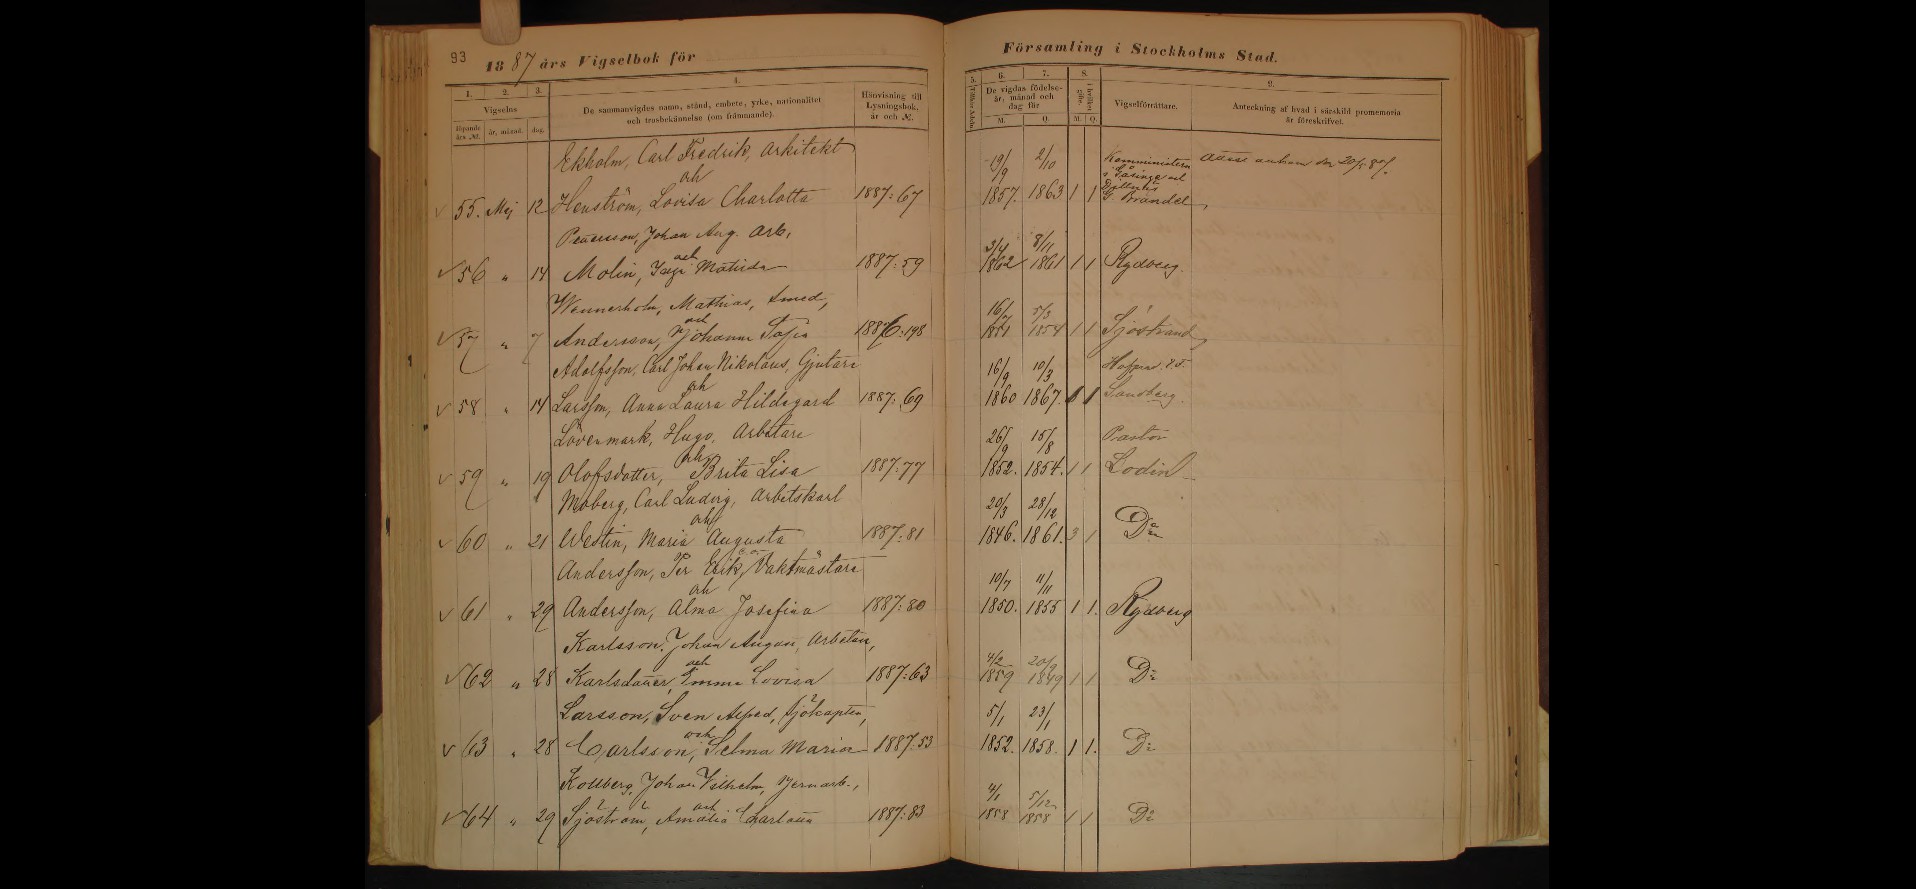 93
1887 års Vigselbok för
Församling i Stockholms Stad.
1. 2. 3. 4.
Vigselns
löpande års №. år, månad. dag.
De sammanvigdes namn, stånd, embete, yrke, nationalitet
och trosbekännelse (om främmande).
Hänvisning till
Lysningsbok,
år och №.
5. 6. 7. 8. 9.
De vigdas födelse-
år, månad och
dag för
M. Q. M. Q.
I hvilket gifte.
Vigselförrättare.
Anteckning af hvad i särskild promemoria
är föreskrifvet.
Ekholm, Carl Fredrik, Arkitekt
och
55. Maj 12 Henström, Lovisa Charlotta 1887:67
19/9 2/10 Komministern
1857. 1863 1 1 G. Brandel
Pettersson, Johan Aug. Arb.
och
56 " 14 Molin, Matilda 1887:59
3/4 8/11
1862 1861 1 1 Rydberg.
Wennerholm, Mathias, Smed,
och
57 " 7 Andersson, Johanna Sofia 1886:198
16/7 5/3
1851 1854 1 1 Sjöstrand
Adolfsson, Carl Johan Nikolaus, Gjutare
och
58 " 14 Larsson, Anna Laura Hildegard 1887:69
16/9 10/3 Hofpred.
1860 1867. 1 1 Sandberg.
Lövenmark, Hugo, Arbetare
och
59 " 19 Olofsdotter, Brita Lisa 1887:77
26/9 15/8 Pastor
1852. 1854. 1 1 Lodin
Moberg, Carl Ludvig, Arbetskarl
och
60 " 21 Westin, Maria Augusta 1887:81
20/3 28/12
1846. 1861. 3 1 Do
Andersson, Per Erik, Vaktmästare
och
61 " 29 Andersson, Alma Josefina 1887:80
10/7 11/11
1850. 1855 1 1. Rydberg
Karlsson, Johan August, Arbetare,
och
62 " 28 Karlsdotter, Emma Lovisa 1887:63
4/2 20/9
1859 1849 1 1 Do
Larsson, Sven Alfred, Sjökapten,
och
63 " 28 Carlsson, Selma Maria 1887:53
5/1 23/1
1852. 1858. 1 1. Do
Kollberg, Johan Vilhelm, Jernarb.,
och
64 " 29 Sjöström, Amalia Charlotta 1887:83
4/1 5/12
1858 1858 1 1 Do